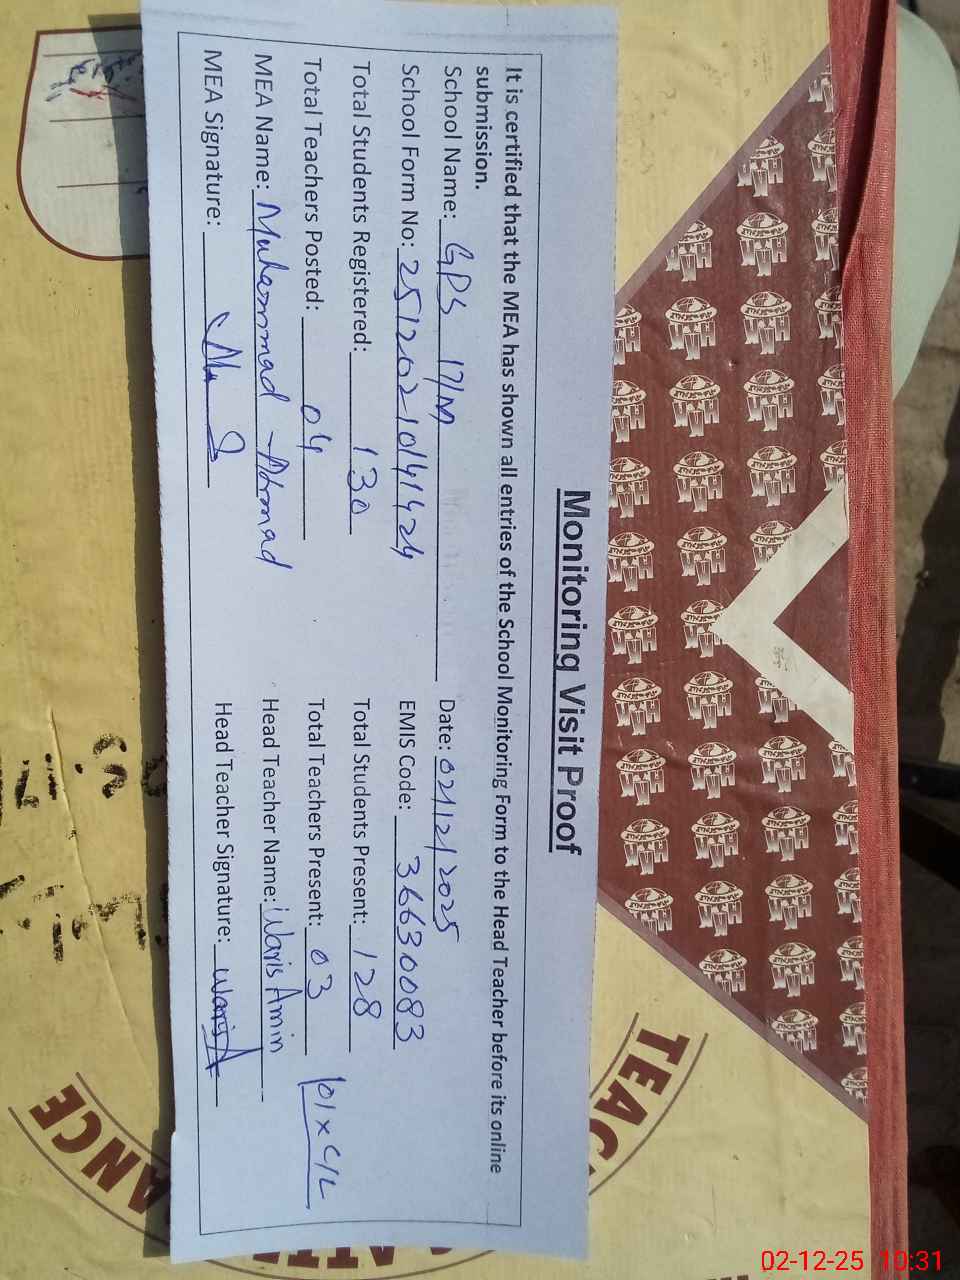 Monitoring Visit Proof
It is certified that the MEA has shown all entries of the School Monitoring Form to the Head Teacher before its online
submission.
School Name: GPS 17/M Date: 02/12/2025
School Form No: 25120210141424 EMIS Code: 36630083
Total Students Registered: 130 Total Students Present: 128
Total Teachers Posted: 04 Total Teachers Present: 03 01 x C/L
MEA Name: Muhammad Ahmad Head Teacher Name: Waris Amin
MEA Signature: Head Teacher Signature: Waris A
02-12-25 10:31